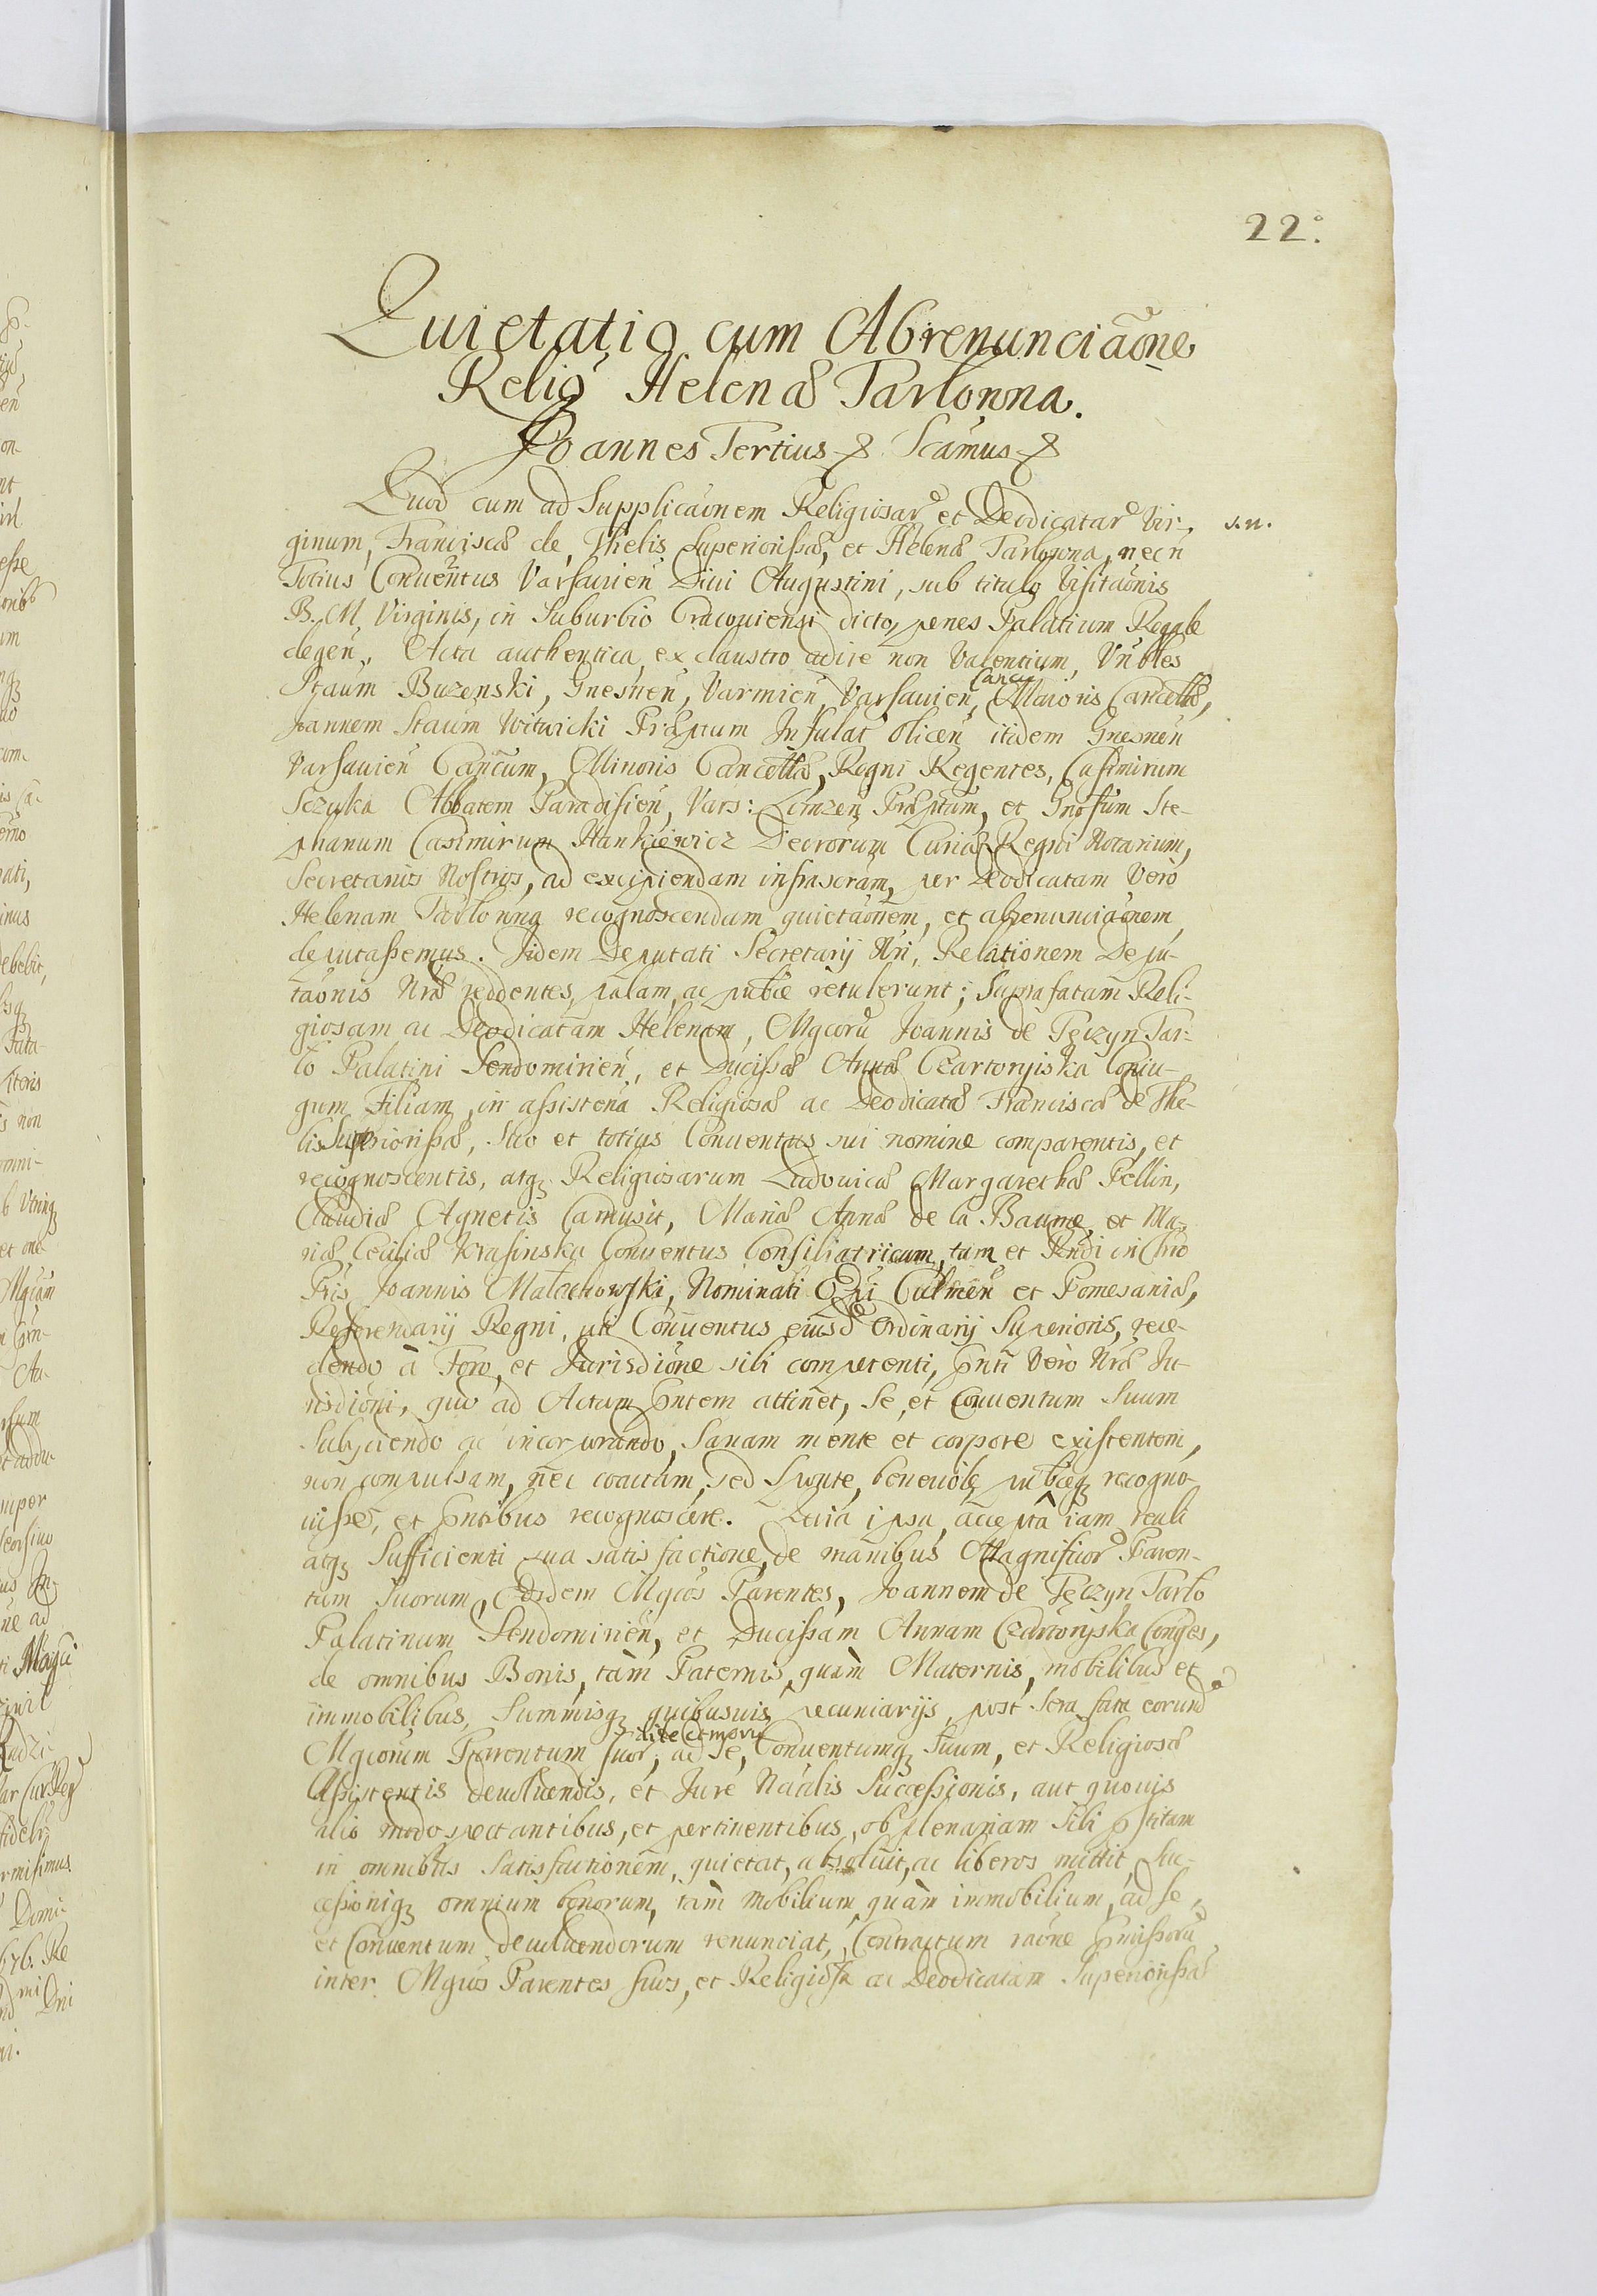 22.
Quietatio cum Abrenunciaõne
Relig Helenæ Tarlonna.
Joannes Tertius & Scamus &
Quod cum ad Supplicaõnem Religiosar et Deodicatar Vir- s.n.
ginum, Franciscæ de Thelis Superiorissæ, et Helenæ Tarlonna, necñ
Totius Conuentus Varsauien Diui Augustini, sub titulo Visitaõnis
B. M. Virginis, in Suburbio Cracouiensi dicto, penes Palatium Regale
degeñ, Acta authentica ex claustro adire non Valentium, Vñbles
Staum Buzenski, Gnesneñ, Varmieñ Varsauieñ Canc Maioris Cancellæ,
Joannem Staum Witwicki Præptum Infulat Olicen itidem Gnesneñ
Varsauieñ Cañcum, Minoris Cancellæ, Regni Regentes, Casimirum
Sczuka Abbatem Paradisieñ, Vars: Lomzeñ Præptum, et Gnosum Ste-
phanum Casimirum Hankiewicz Decrorum Curiæ Regni Notarium,
Secretarios Nostros, ad excipiendam infrascram, per Deodicatam Verò
Helenam Tarlonna recognoscendam quietaõnem, et abrenunciaõnem
deputassemus. Iidem Deputati Secretarij Nri, Relationem Depu-
taõnis Nræ reddentes, palam, ac publice retulerunt; Suprafatam Reli-
giosam ac Deodicatam Helenam, Mgcorũ Joannis de Tęczyn Tar-
lo Palatini Sendomirieñ, et Ducissæ Annæ Czartoryiska Coniu-
gum Filiam, in assistena Religiosæ ac Deodicatæ Franciscæ de The-
lis Superiorissæ, Suo et totius Conuentus sui nomine comparentis, et
recognoscentis, atq Religiosarum Ludouicæ Margarethæ Pellin,
Claudiæ Agnetis Camusit, Mariæ Annæ de la Baume, et Ma-
riæ Ceciliæ Krasinska Conuentus Consiliatricum, tum et Rndi in Chro
Pris Joannis Małachowski, Nominati Epi Culmeñ et Pomesaniæ,
Referendarij Regni, uti Conuentus eiusd Ordinarij Superioris, rece-
dendo à Foro, et Jurisdiõne sibi competenti, pnti Verò Nræ Ju-
risdiõni, quo ad Actum pntem attinet, Se, et Conuentum Suum
Subijciendo ac incorporando, Sanam mente et corpore existentem,
non compulsam, nec coactam, sed Sponte, beneuole publiceq recogno-
uisse, et pntibus recognoscere. Quia ipsa, accepta iam reali
atq Sufficienti sua satisfactione, de manibus Magnificor Paren-
tum Suorum, Eosdem Mgcos Parentes, Joannem de Tęczyn Tarlo
Palatinum Sendomirieñ, et Ducissam Annam Czartoryska Conges,
de omnibus Bonis, tàm Paternis, quàm Maternis, mobilibus et
immobilibus, Summisq quibusuis pecuniarijs, post Sera fata eorund
Mgcorum Parentum suor, rite et more ad se, Conuentumq Suum, et Religiosæ
Assistentis deuoluendis, et Jure Natalis Successionis, aut quouis
alio modo spectantibus, et pertinentibus, ob plenariam Sibi pstitam
in omnibus Satisfactionem, quietat, absoluit, ac liberos mittit, Suc-
cessioniq omnium bonorum, tàm mobilium, quàm immobilium, ad se,
et Conuentum deuoluendorum renunciat, Contractum raõne pmissorũ
inter Mgcos Parentes suos, et Religiosam ac Deodicatam Superiorissæ